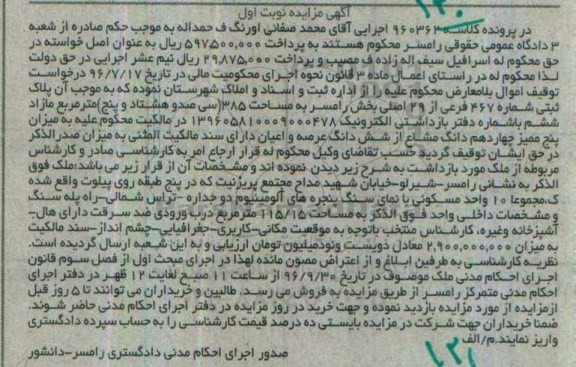 ۱۳۰
آگهی مزایده نوبت اول
در پرونده کلاسه ۹۶۰۳۶۲ اجرایی آقای محمد صفائی اورنگ ف حمداله به موجب حکم صادره از شعبه
۳ دادگاه عمومی حقوقی رامسر محکوم هستند به پرداخت ۵۹۷۵۰۰,۰۰۰ ریال به عنوان اصل خواسته در
حق محکوم له اسرافیل سیف اله زاده ف مصیب و پرداخت ۲۹,۸۷۵,۰۰۰ ریال نیم عشر اجرایی در حق دولت
لذا محکوم له در راستای اعمال ماده ۳ قانون نحوه اجرای محکومیت مالی در تاریخ ۹۶/۷/۱۷ درخواست
توقیف اموال بلامعارض محکوم علیه را از اداره ثبت و اسناد و املاک شهرستان نموده که به موجب آن پلاک
ثبتی شماره ۴۶۷ فرعی از ۲۹ اصلی بخش رامسر به مساحت ۳۸۵(سی صدو هشتاد و پنج)مترمربع مازاد
ششم باشماره دفتر بازداشتی الکترونیک ۱۳۹۶۰۵۸۱۰۰۰۹۰۰۰۴۷۸ در مالکیت محکوم علیه به میزان
پنج ممیز چهاردهم دانگ مشاع از شش دانگ عرصه و اعیان دارای سند مالکیت المثنی به میزان صدر الذکر
در حق ایشان توقیف گردید حسب تقاضای وکیل محکوم له قرار ارجاع امر به کارشناسی صادر و کارشناس
مربوطه از ملک مورد بازداشت به شرح زیر دیدن نموده اند و مشخصات آن از قرار زیر می باشد:ملک فوق
الذکر به نشانی رامسر-شیرلو-خیابان شهید مداح مجتمع پریزنیت که در پنج طبقه روی پیلوت واقع شده
ک،مجموعا ۱۰ واحد مسکونی با نمای سنگ پنجره های آلومینیوم دو جداره -تراس شمالی-راه پله سنگ
و مشخصات داخلی واحد فوق الذکر به مساحت ۱۱۵/۱۵ مترمربع درب ورودی ضد سرقت دارای هال-
آشپزخانه وغیره، کارشناس منتخب باتوجه به موقعیت مکانی-کاربری-جغرافیایی-چشم انداز-سند مالکیت
به میزان ۲,۹۰۰,۰۰۰,۰۰۰ معادل دویست ونودمیلیون تومان ارزیابی و به این شعبه ارسال گردیده است.
نظریه کارشناسی به طرفین ابلاغ و از اعتراض مصون مانده لهذا در اجرای مبحث اول از فصل سوم قانون
اجرای احکام مدنی ملک موصوف در تاریخ ۹۶/۹/۳۰ از ساعت ۱۱ صبح لغایت ۱۲ ظهر در دفتر اجرای
احکام مدنی متمرکز رامسر از طریق مزایده به فروش می رسد. طالبین و خریداران می توانند تا ۵ روز قبل
ازمزایده از مورد مزایده بازدید نموده و جهت خرید در روز مزایده در دفتر اجرای احکام مدنی حاضر شوند.
ضمنا خریداران جهت شرکت در مزایده بایستی ده درصد قیمت کارشناسی را به حساب سپرده دادگستری
واریز نمایند.م/الف
صدور اجرای احکام مدنی دادگستری رامسر-دانشور
۱۲۱